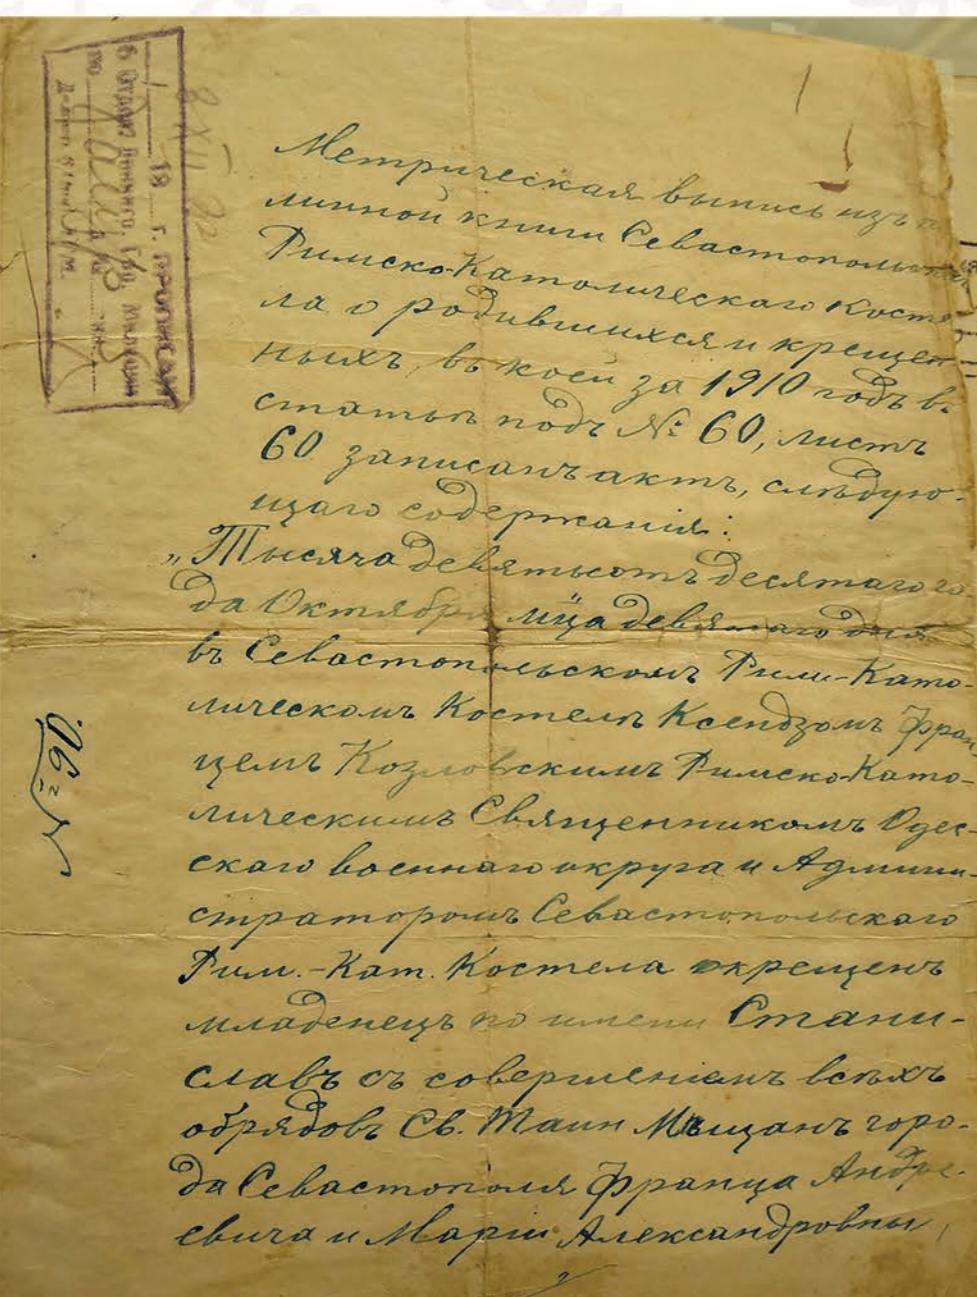 Метрическая выпись изъ
линной книги Севастопольска
Римско-Католическаго Косте
ла о родившихся и крещен
ныхъ, въ коей за 1910 годъ въ
статьѣ подъ № 60, листъ
60 записанъ актъ, слѣдую-
щаго содержанія:
„Тысяча девятьсотъ десятаго го
да Октября мца девятаго дня
въ Севастопольскомъ Рим-Като-
лическомъ Костелѣ Ксендзомъ Фран
цемъ Козловскимъ Римско-Като-
лическимъ Священникомъ Одес-
скаго военнаго округа и Админи-
страторомъ Севастопольскаго
Рим.-Кат. Костела окрещенъ
младенецъ по имени Стани-
славъ съ совершеніемъ всѣхъ
обрядовъ Св. Таин Мѣщанъ горо-
да Севастополя Франца Андре-
евича и Маріи Александровны,
18 г. прописан
в Отделе Гор. Милиции